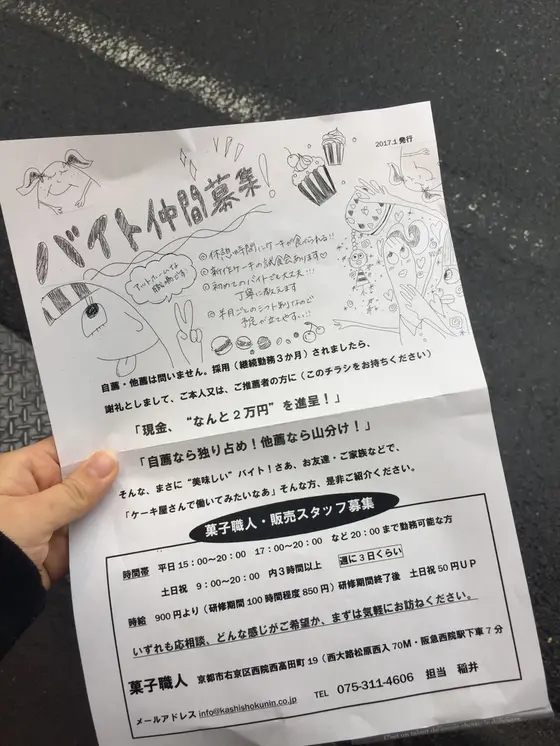 2017.1 発行
バイト仲間募集!
アットホームな
職場です!
◎休憩の時間にケーキが食べられる!!
◎新作ケーキの試食会あります♡
◎初めてのバイトでも大丈夫!!
丁寧に教えます
◎半月ごとのシフト制なので
予定が立てやすい!!
自薦・他薦は問いません。採用（継続勤務3か月）されましたら、
謝礼としまして、ご本人又は、ご推薦者の方に（このチラシをお持ちください）
「現金、“なんと2万円”を進呈！」
「自薦なら独り占め！他薦なら山分け！」
そんな、まさに“美味しい”バイト！さあ、お友達・ご家族などで、
「ケーキ屋さんで働いてみたいなあ」そんな方、是非ご紹介ください。
菓子職人・販売スタッフ募集
時間帯 平日15：00～20：00 17：00～20：00 など20：00まで勤務可能な方
土日祝 9：00～20：00 内3時間以上 週に3日くらい
時給 900円より（研修期間100時間程度850円）研修期間終了後 土日祝50円UP
いずれも応相談、どんな感じがご希望か、まずは気軽にお訪ねください。
菓子職人 京都市右京区西院西高田町19（西大路松原西入70M・阪急西院駅下車7分
メールアドレス info@kashishokunin.co.jp TEL 075-311-4606 担当 稲井